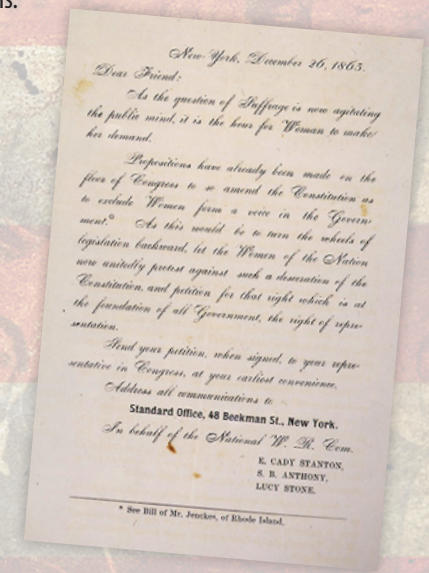 ns.
New York, December 26, 1865.
Dear Friend:
As the question of Suffrage is now agitating
the public mind, it is the hour for Woman to make
her demand.
Propositions have already been made on the
floor of Congress to so amend the Constitution as
to exclude Women form a voice in the Govern-
ment.* As this would be to turn the wheels of
legislation backward, let the Women of the Nation
now unitedly protest against such a desecration of the
Constitution, and petition for that right which is at
the foundation of all Government, the right of repre-
sentation.
Send your petition, when signed, to your repre-
sentative in Congress, at your earliest convenience.
Address all communications to
Standard Office, 48 Beekman St., New York.
In behalf of the National W. R. Com.
E. CADY STANTON,
S. B. ANTHONY,
LUCY STONE.
* See Bill of Mr. Jenckes, of Rhode Island.